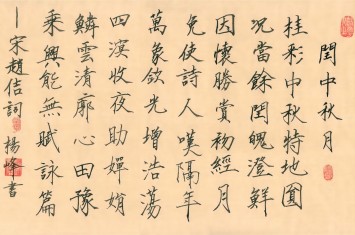 閏中秋月
桂彩中秋特地圓
況當餘閏魄澄鮮
因懷勝賞初經月
免使詩人嘆隔年
萬象斂光增浩蕩
四溟收夜助嬋娟
鱗雲清廓心田豫
乘興能無賦詠篇
宋趙佶詞 楊峰書